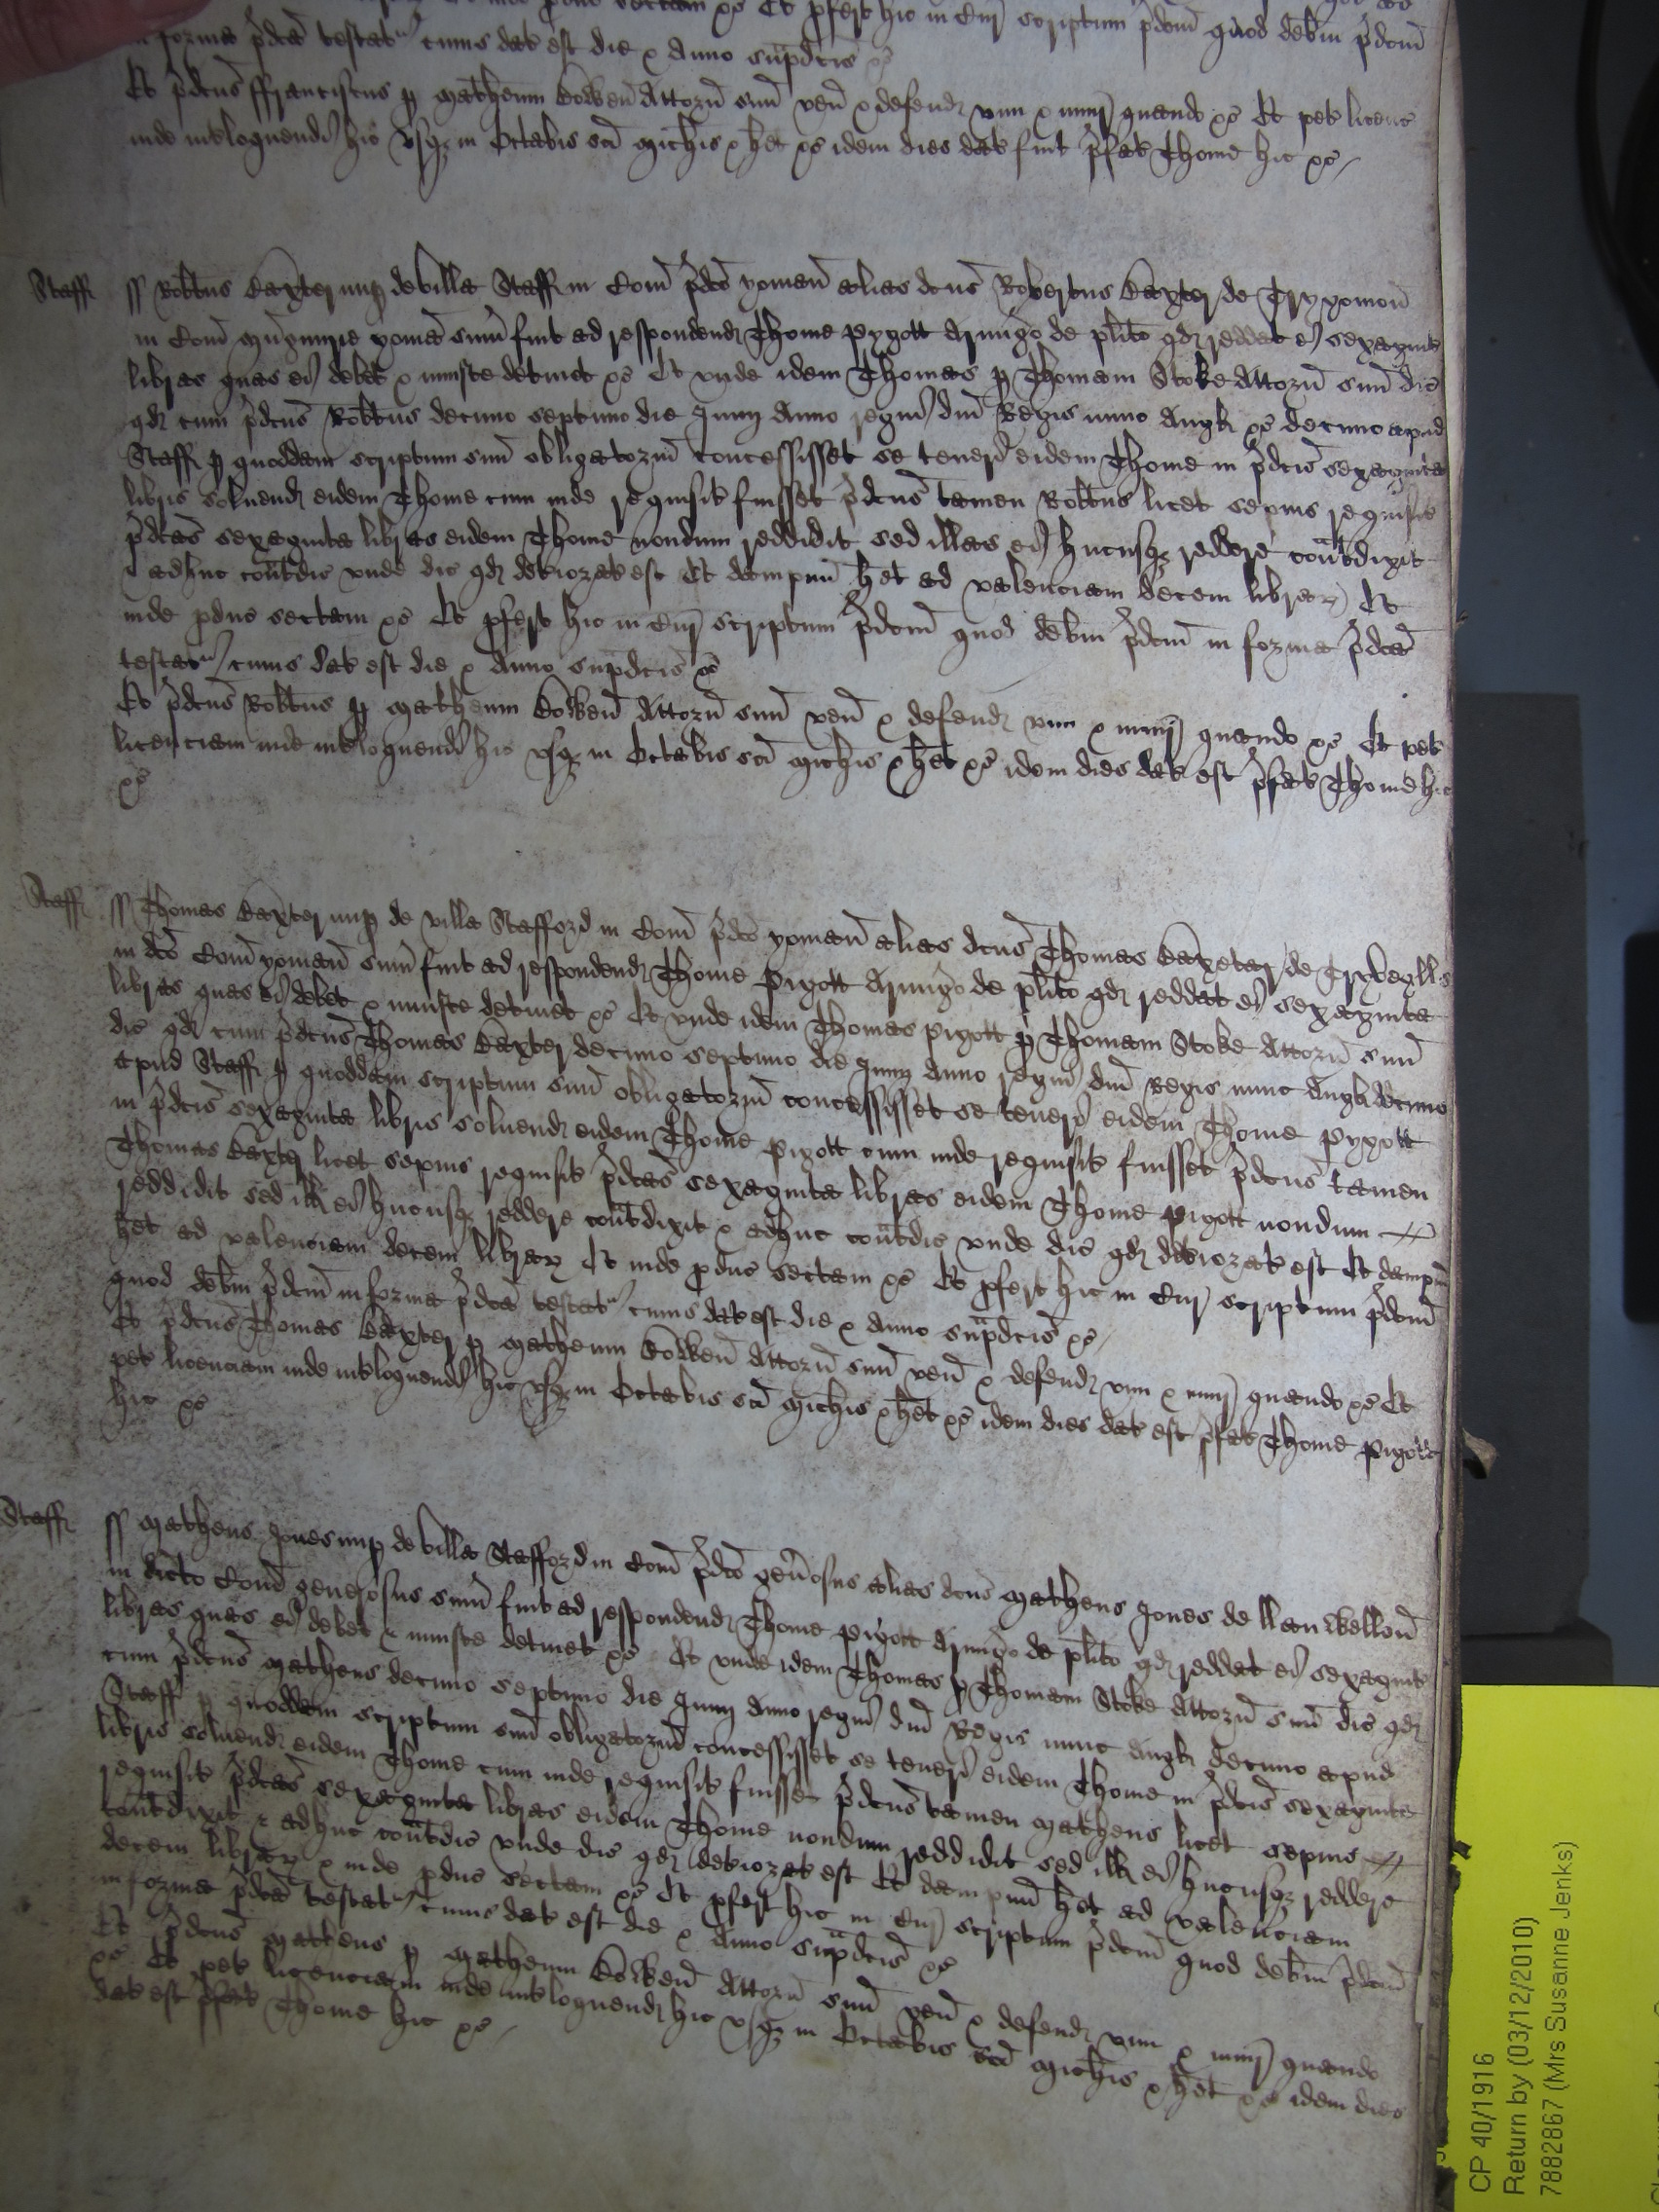 in forma p̄dca testat cuius dat est die & Anno sup̄dcis &c
Et p̄dcus ffranciscus p Matheum Bowen Attorn suu ven & defend vim & iniur quando &c Et pet licenc
inde int̄loquendi hic usq in Octabis sci Mich̄is & het &c idem dies dat fuit p̄fat Thome hic &c
Staff
ss Rob̄tus Baxter nup de villa Staff in Com p̄dco yoman alias dcus Robertus Baxter de
in Com yoman sum fuit ad respondend Thome Pygott Armig̃o de plito qd reddat ei sexaginta
libras quas ei debet & iniuste detinet &c Et unde idem Thomas p Thomam Stoke Attorn suu dic
qd cum p̄dcus Rob̄tus decimo septimo die Junij Anno regni dni Regis nunc Angl &c decimo apud
Staff p quoddam scriptum suu obligatoriu concessisset se teneri eidem Thome in p̄dcis sexaginta
libris soluend eidem Thome cum inde requisit fuisset p̄dcus tamen Rob̄tus licet sepius requisit
p̄dcas sexaginta libras eidem Thome nondum reddidit sed illas ei hucusq reddere cont̄dixit
& adhuc cont̄dic unde dic qd det̄iorat est Et dampnu het ad valenciam decem librar Et
inde pduc sectam &c Et pfert hic in Cur scriptum p̄dcm quod debm p̄dcm in forma p̄dca
testat cuius dat est die & Anno sup̄dcis &c
Et p̄dcus Rob̄tus p Matheum Bowen Attorn suu ven & defend vim & iniur quando &c Et pet
licenciam inde int̄loquendi hic usq in Octabis sci Mich̄is & het &c idem dies dat est p̄fat Thome hic
&c
Staff
ss Thomas Baxter nup de villa Stafford in Com p̄dco yoman alias dcus Thomas Baxeter de
in dco Com yoman sum fuit ad respondend Thome Pigott Armig̃o de plito qd reddat ei sexaginta
libras quas ei debet & iniuste detinet &c Et unde idem Thomas Pigott p Thomam Stoke Attorn suu
dic qd cum p̄dcus Thomas Baxter decimo septimo die Junij Anno regni dni Regis nunc Angl decimo
apud Staff p quoddam scriptum suu obligatoriu concessisset se teneri eidem Thome Pygott
in p̄dcis sexaginta libris soluend eidem Thome Pigott cum inde requisit fuisset p̄dcus tamen
Thomas Baxter licet sepius requisit p̄dcas sexaginta libras eidem Thome Pigott nondum
reddidit sed ill ei hucusq reddere cont̄dixit & adhuc cont̄dic unde dic qd det̄iorat est Et dampnu
het ad valenciam decem librar Et inde pduc sectam &c Et pfert hic in Cur scriptum p̄dcm
quod debm p̄dcm in forma p̄dca testat cuius dat est die & Anno sup̄dcis &c
Et p̄dcus Thomas Baxter p Matheum Bowen Attorn suu ven & defend vim & iniur quando &c Et
pet licenciam inde int̄loquendi hic usq in Octabis sci Mich̄is & het &c idem dies dat est p̄fat Thome Pigott
hic &c
Staff
ss Matheus Jones nup de villa Stafford in Com p̄dco gen̄osus alias dcus Matheus Jones de
in dicto Com generosus sum fuit ad respondend Thome Pigott Armig̃o de plito qd reddat ei sexaginta
libras quas ei debet & iniuste detinet &c Et unde idem Thomas p Thomam Stoke Attorn suu dic qd
cum p̄dcus Matheus decimo septimo die Junij Anno regni dni Regis nunc Angl decimo apud
Staff p quoddam scriptum suu obligatoriu concessisset se teneri eidem Thome in p̄dcis sexaginta
libris soluend eidem Thome cum inde requisit fuisset p̄dcus tamen Matheus licet sepius
requisit p̄dcas sexaginta libras eidem Thome nondum reddidit sed ill ei hucusq reddere
cont̄dixit & adhuc cont̄dic unde dic qd det̄iorat est Et dampnu het ad valenciam
decem librar & inde pduc sectam &c Et pfert hic in Cur scriptum p̄dcm quod debm p̄dcm
in forma p̄dca testat cuius dat est die & Anno sup̄dcis &c
Et p̄dcus Matheus p Matheum Bowen Attorn suu ven & defend vim & iniur quando
&c Et pet licenciam inde int̄loquend hic usq in Octabis sci Mich̄is & het &c idem dies
dat est p̄fat Thome hic &c
CP 40/1916
Return by (03/12/2010)
7882867 (Mrs Susanne Jenks)